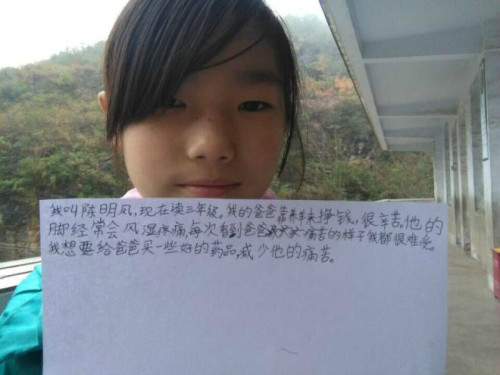 我叫陈明凤,现在读三年级。我的爸爸靠来挣钱,很辛苦。他的
脚经常会风湿疼痛,每次看到爸爸痛苦的样子我都很难受。
我想要给爸爸买一些好的药品,减少他的痛苦。